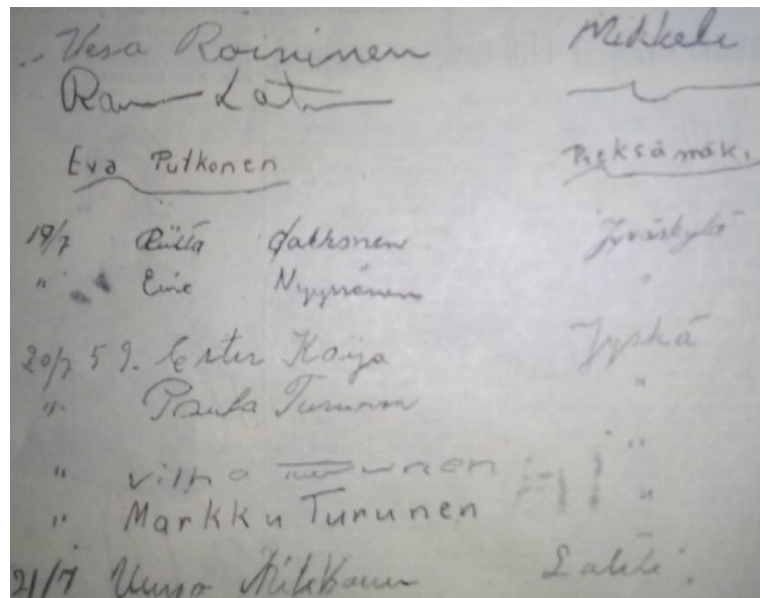 " Vesa Roininen Mikkeli
Eva Putkonen Pieksämäki
19/7 Riitta Jakkonen Jyväskylä
" Eine Nyyssönen "
20/7 59. Ester Kaija Jyskä
" Paula Turunen "
" vilho Turunen "
" Markku Turunen "
21/7 Lahti.